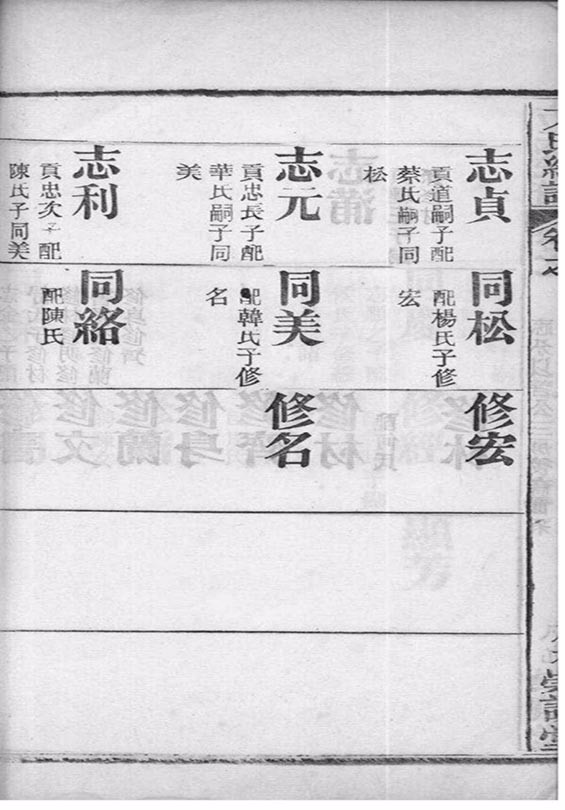 志貞
貢道嗣子配
蔡氏嗣子同
松
志元
貢忠長子配
華氏嗣子同
美
志利
貢忠次子配
陳氏子同美
同松
配楊氏子修
宏
同美
配韓氏子修
名
同絡
配陳氏
修宏
修名